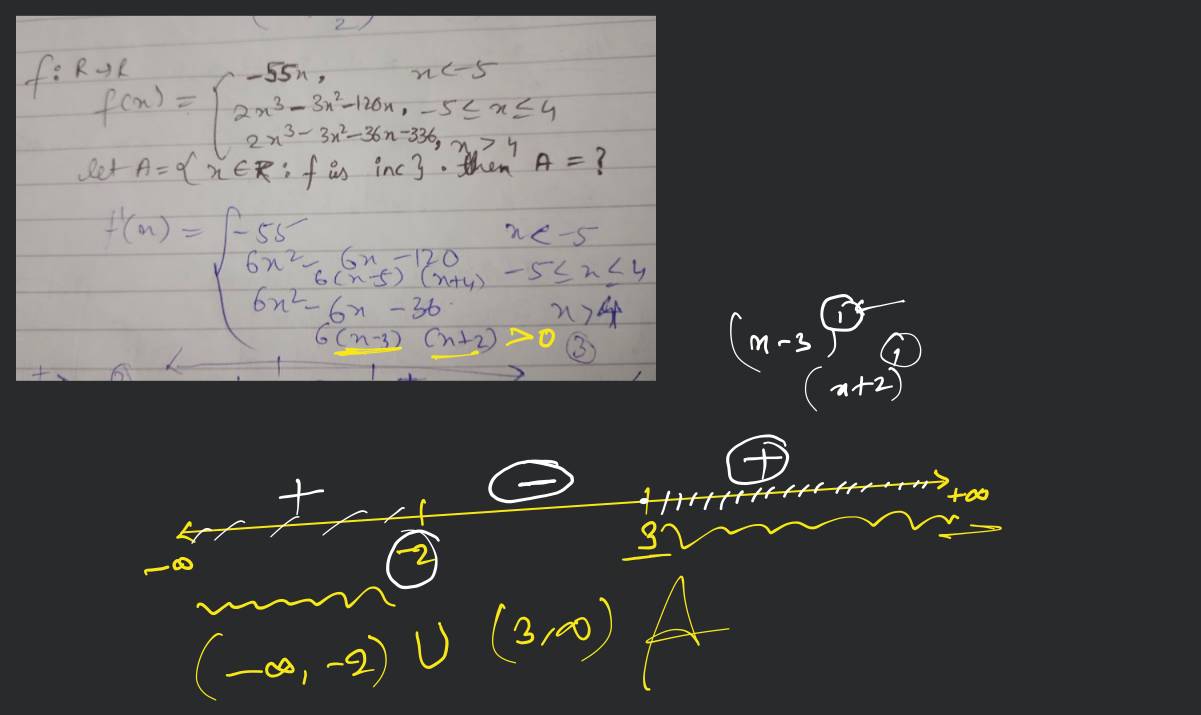 2
f: R→R
f(x) = { -55x, x<-5
2x³-3x²-120x, -5≤x≤4
2x³-3x²-36x-336, x>4
let A={x∈R: f is inc}. then A=?
f'(x) = { -55 x<-5
6x²-6x-120
6(x-5)(x+4) -5≤x≤4
6x²-6x-36 x>4
6(x-3)(x+2) >0 ③
(x-3)¹
(x+2)¹
+ - +
-∞ -2 3 +∞
(-∞, -2) ∪ (3, ∞) A